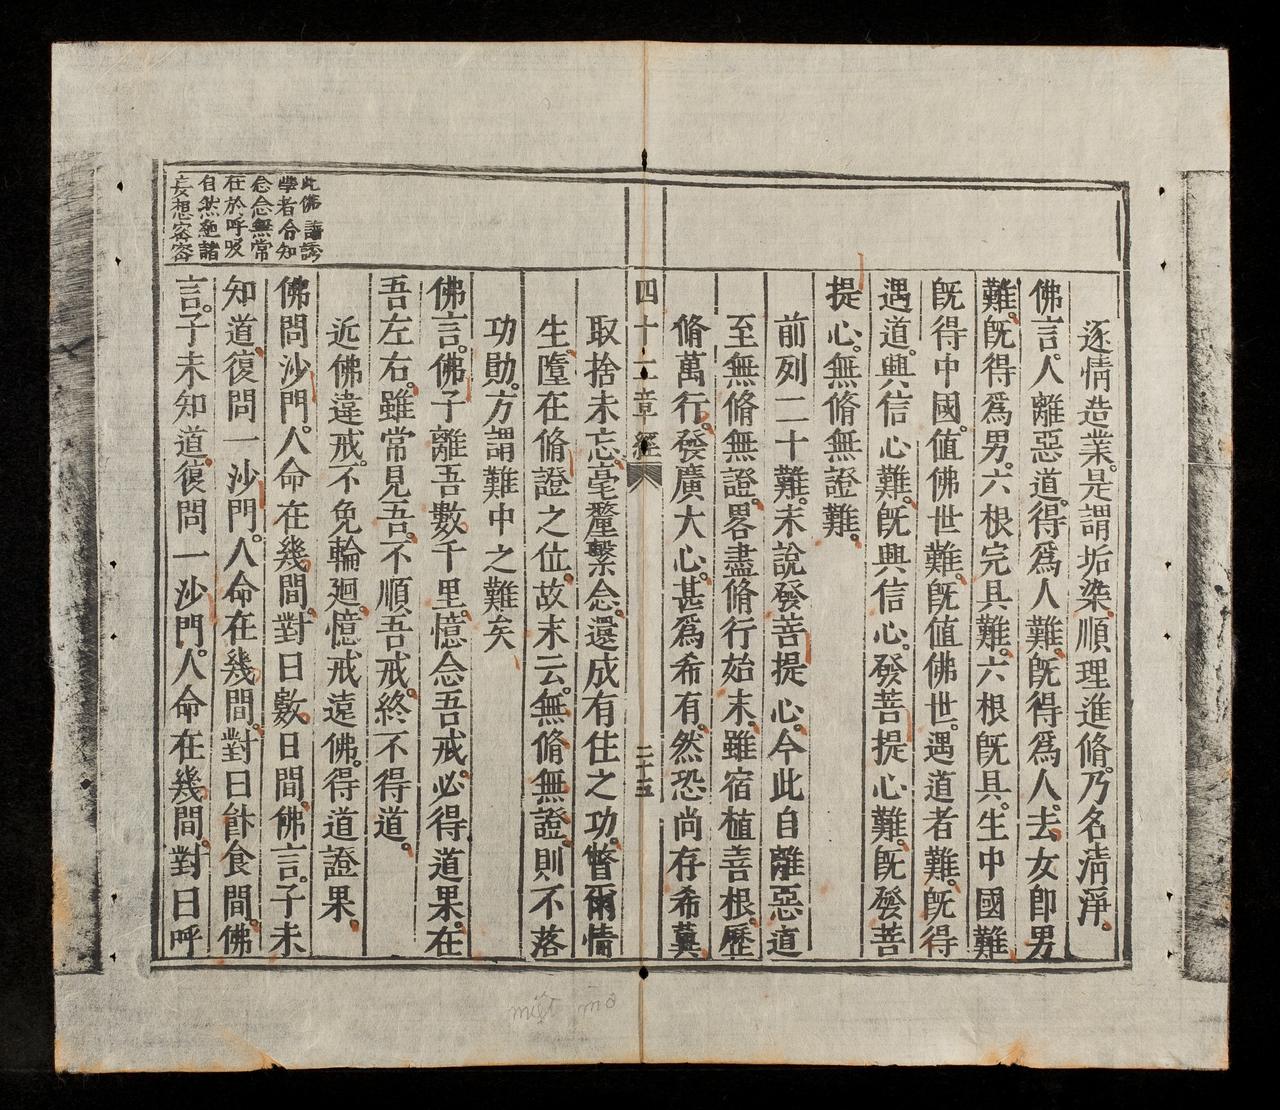 逐情造業。是謂垢染。順理進脩。乃名清淨。
佛言。人離惡道。得爲人難。旣得爲人。去女卽男
難。旣得爲男。六根完具難。六根旣具。生中國難
旣得中國。值佛世難。旣值佛世。遇道者難。旣得
遇道。興信心難。旣興信心。發菩提心難。旣發菩
提心。無脩無證難。
前列二十難。末說發菩提心。今此自離惡道
至無脩無證。畧盡脩行始末。雖宿植善根。歷
脩萬行。發廣大心。甚爲希有。然恐尚存希冀
四十二章經
二十五
取捨未忘。毫釐繫念。還成有住之功。瞥爾情
生。墮在脩證之位。故末云。無脩無證。則不落
功勛。方謂難中之難矣
佛言。佛子離吾數千里。憶念吾戒。必得道果。在
吾左右。雖常見吾。不順吾戒。終不得道。
近佛違戒。不免輪廻。憶戒遠佛。得道證果。
此佛
學者合知
念念無常
在於呼吸
自然絶諸
妄想密密
佛問沙門。人命在幾間。對曰數日間。佛言。子未
知道。復問一沙門。人命在幾間。對曰飰食間。佛
言。子未知道。復問一沙門。人命在幾間。對曰呼
miệt mô